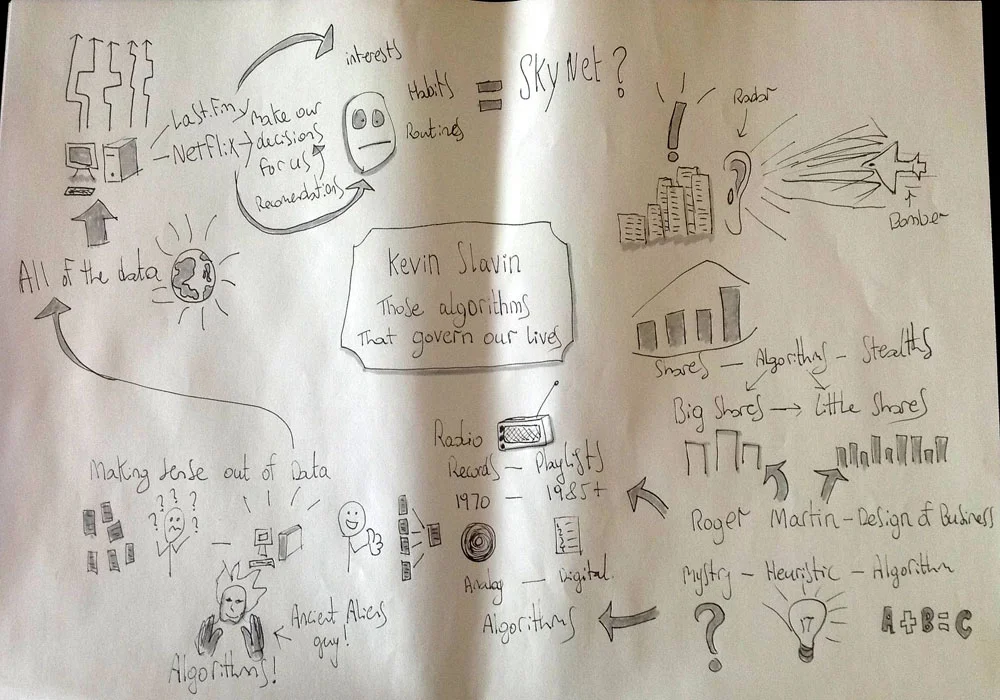 Last.Fm
Netflix
make our
decisions
for us
Recomendations
interests
Habits
Routines
=
Sky Net?
!
Radar
Bomber
All of the data
Kevin Slavin
Those algorithms
That govern our lives
Shares - Algorithms - Stealths
Big Shares → Little Shares
Roger Martin - Design of Business
Mystry - Heuristic - Algorithm
?
A+B=C
Radio
Records - Playlists
1970 - 1985+
Analog - Digital
Algorithms
Making sense out of Data
? ? ? ? ?
Ancient Aliens
guy!
Algorithms!